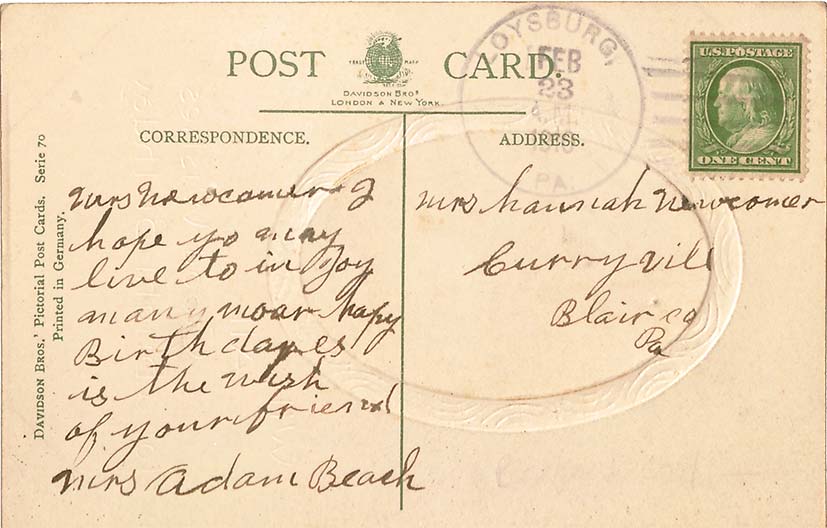 POST CARD.
TRADE MARK
DAVIDSON BROS
LONDON & NEW YORK.
LOYSBURG,
FEB
23
1910
PA.
U.S. POSTAGE
ONE CENT
CORRESPONDENCE.
ADDRESS.
DAVIDSON BROS.' Pictorial Post Cards. Serie 70
Printed in Germany.
Mrs Newcomer I
hope yo may
live to in Joy
many moar hapy
Birthdayes
is the wish
of your friend
Mrs Adam Beach
Mrs Hannah Newcomer
Curryvill
Blair co
Pa